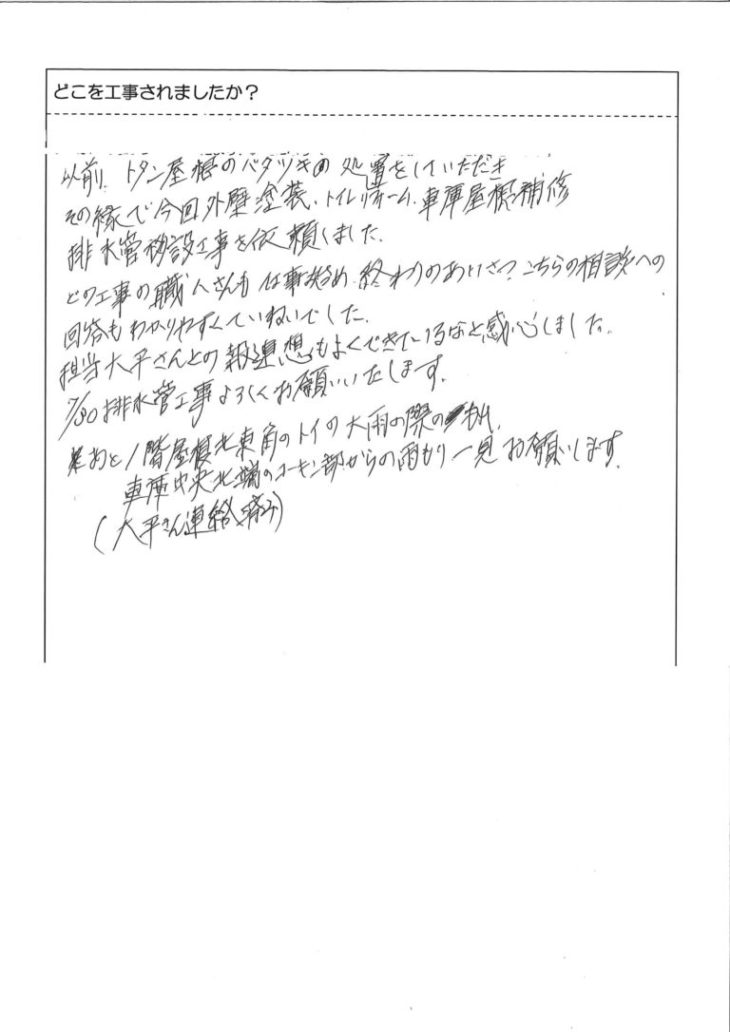 どこを工事されましたか?
以前、トタン屋根のバタツキの処置をしていただき
その縁で今回外壁塗装、トイレリフォーム、車庫屋根補修
排水管移設工事を依頼しました。
どの工事の職人さんも仕事始め、終わりのあいさつ、こちらの相談への
回答もわかりやすくていねいでした。
担当大平さんとの報連想もよくできているなと感心しました。
7/30排水管工事よろしくお願いいたします。
あと1階屋根北東角のトイの大雨の際の
車庫中央北端のコーキン部からの雨もり一見お願いします。
(大平さん連絡済み)